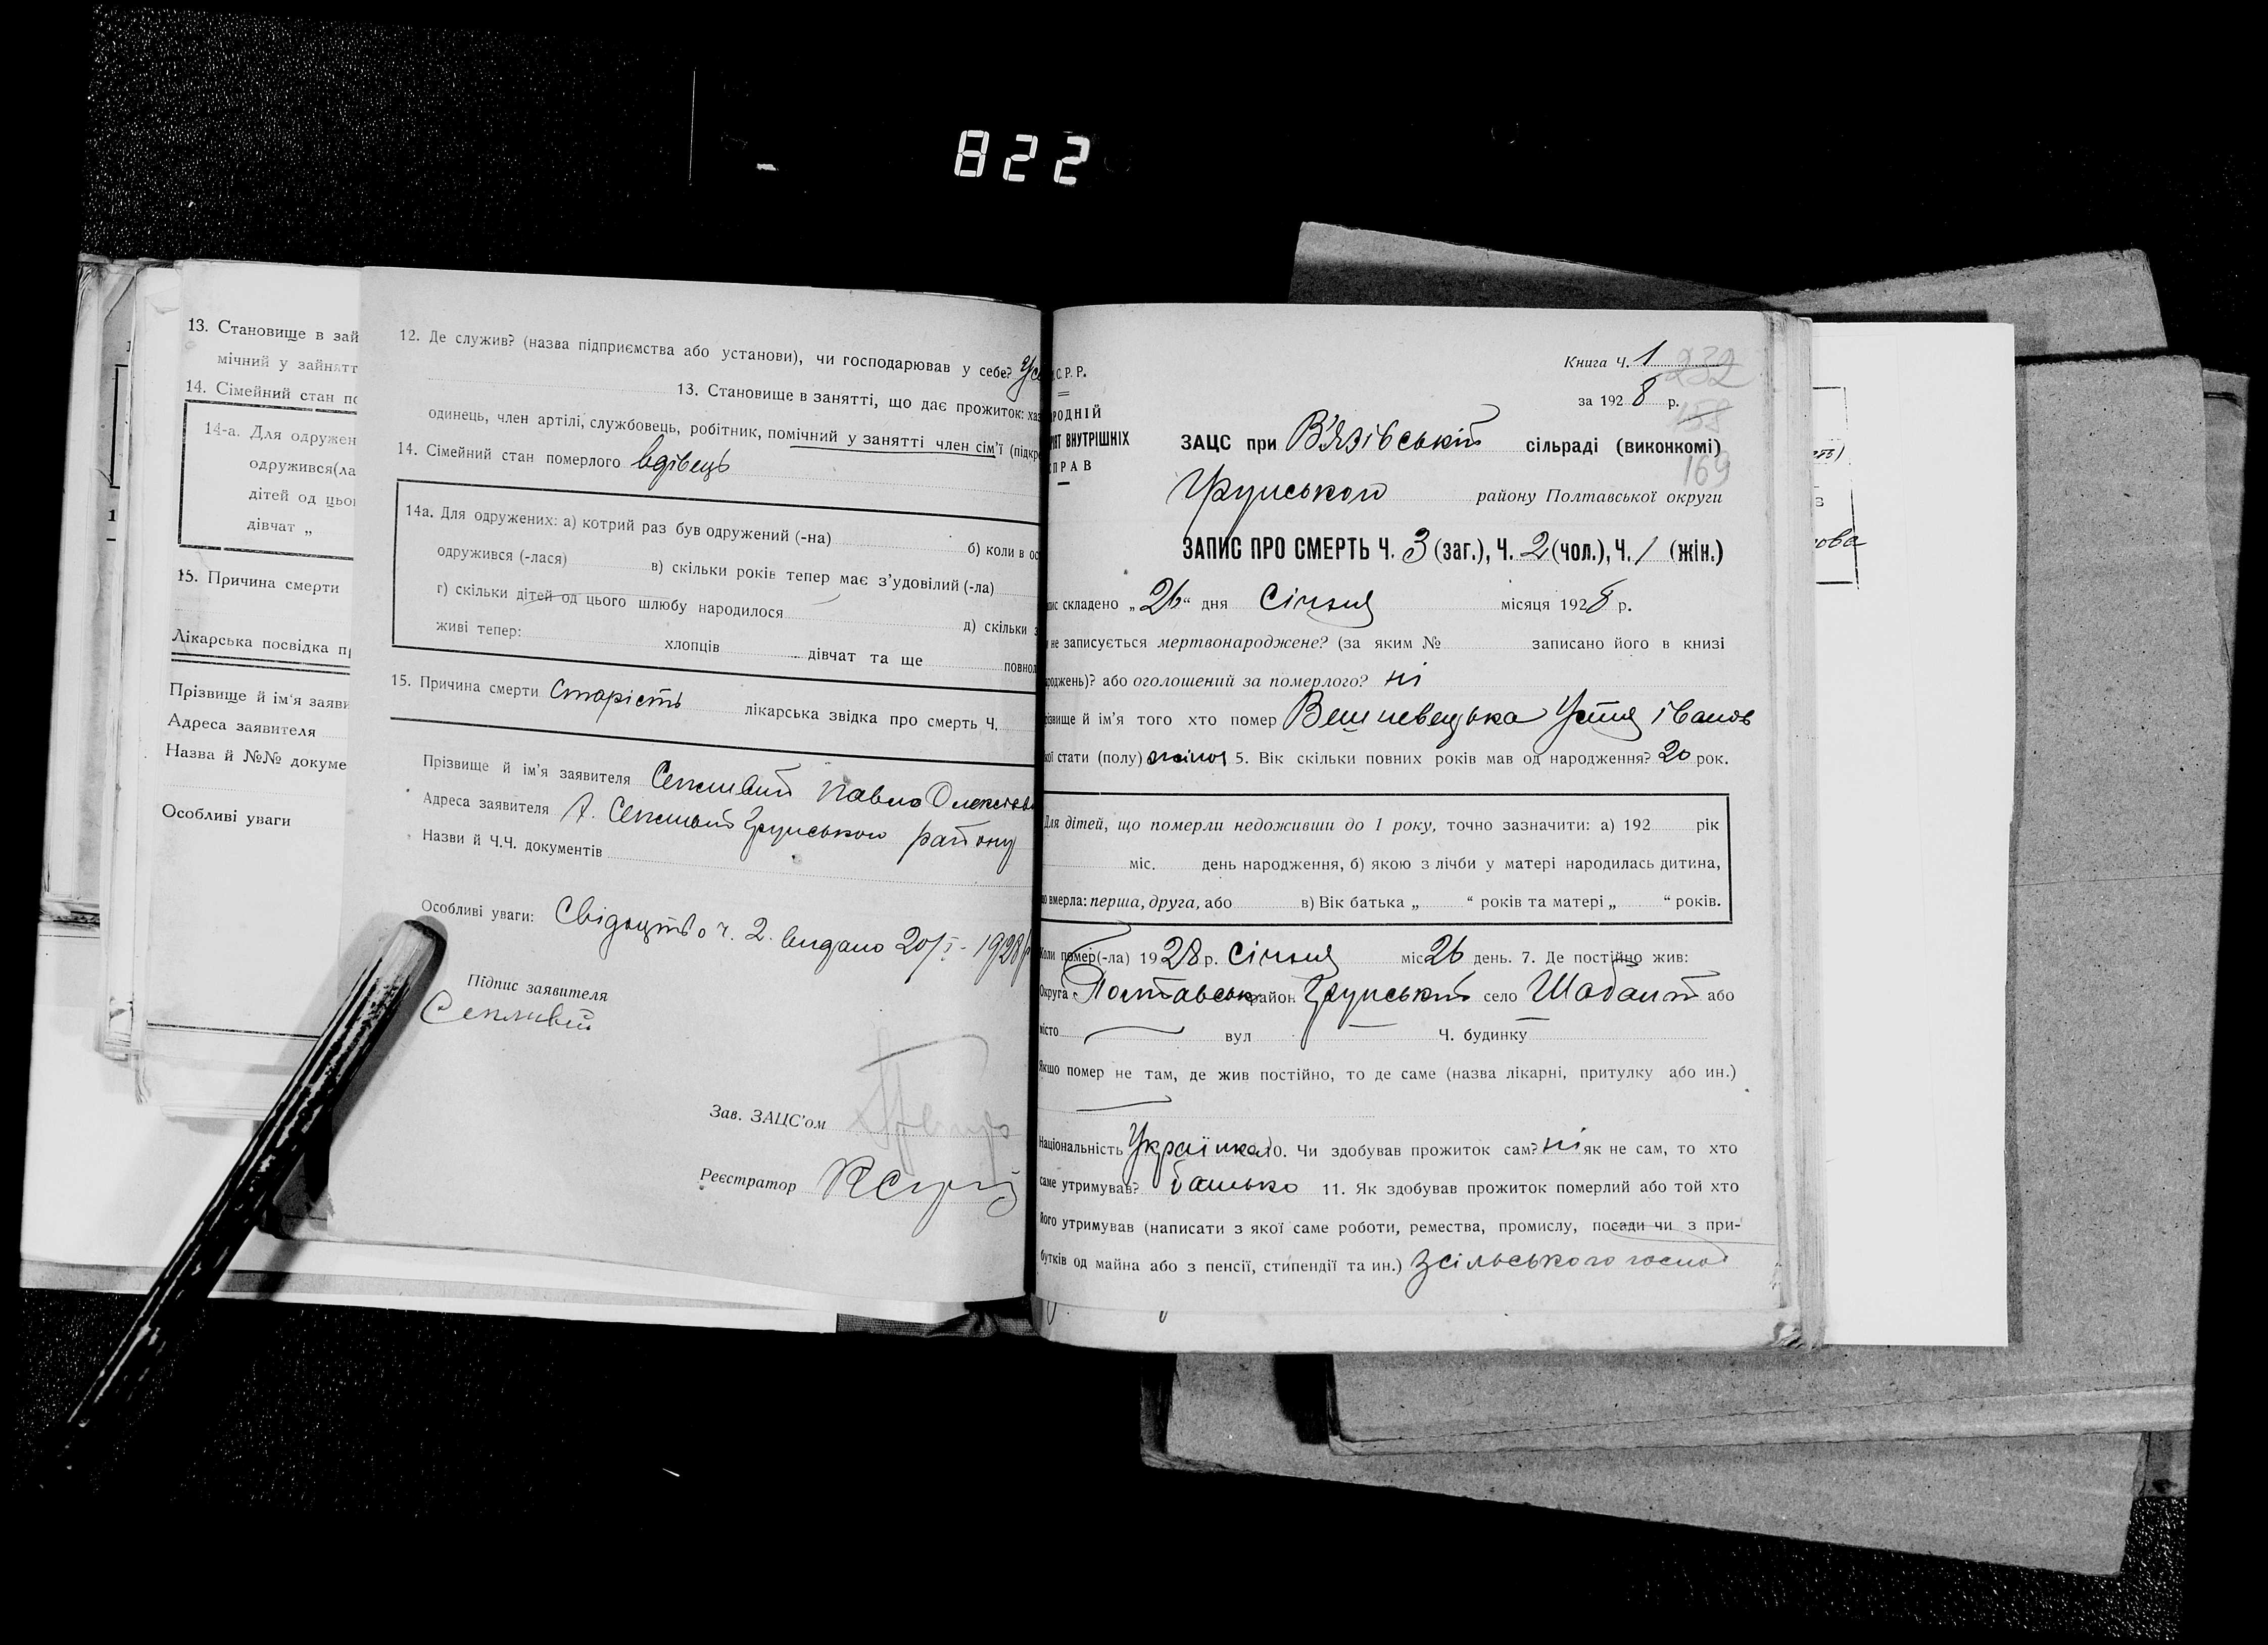 822
13. Становище в зай
мічний у зайнятт
14. Сімейний стан по
14-а. Для одружен
одружився(ла
дітей од цьог
дівчат „
15. Причина смерти
Лікарська посвідка п
Прізвище й ім'я заяви
Адреса заявителя
Назва й №№ докуме
Особливі уваги
12. Де служив? (назва підприємства або установи), чи господарював у себе? Усе
13. Становище в занятті, що дає прожиток: хаз
одинець, член артілі, службовець, робітник, помічний у занятті член сім'ї (підкре
14. Сімейний стан померлого вдівець
14а. Для одружених: а) котрий раз був одружений (-на) б) коли в ос
одружився (-лася) в) скільки років тепер має з'удовілий (-ла)
г) скільки дітей од цього шлюбу народилося д) скільки з
живі тепер: хлопців дівчат та ще повнол
15. Причина смерти Старість лікарська звідка про смерть Ч.
Прізвище й ім'я заявителя Павло
Адреса заявителя Х. Грунського району
Назви й Ч.Ч. документів
Особливі уваги: Свідоцтво ч. 2. видано 20/I - 1928р
Підпис заявителя
Зав. ЗАЦС'ом
Реєстратор
С.Р.Р.
РОДНІЙ
ЯТ ВНУТРІШНІХ
ПРАВ
Книга Ч. 1 232
за 1928 р.
158
ЗАЦС при В'язівській сільраді (виконкомі)
169
Грунського району Полтавської округи
ЗАПИС ПРО СМЕРТЬ Ч. 3 (заг.), Ч. 2 (чол.), Ч. 1 (жін.)
ис складено „26“ дня Січня місяця 1928 р.
не записується мертвонароджене? (за яким № записано його в книзі
роджень)? або оголошений за померлого? ні
різвище й ім'я того хто помер Вешневецька Устя Іванов
кої стати (полу) жіноч 5. Вік скільки повних років мав од народження? 20 рок.
Для дітей, що померли недоживши до 1 року, точно зазначити: а) 192 рік
міс. день народження, б) якою з лічби у матері народилась дитина,
що вмерла: перша, друга, або в) Вік батька „ “ років та матері „ “ років.
Коли помер(-ла) 1928 р. Січня міс 26 день. 7. Де постійно жив:
Округа Полтавськ район Грунський село Шабалт або
місто вул Ч. будинку
Якщо помер не там, де жив постійно, то де саме (назва лікарні, притулку або ин.)
Національність Українка 10. Чи здобував прожиток сам? ні як не сам, то хто
саме утримував? батько 11. Як здобував прожиток померлий або той хто
його утримував (написати з якої саме роботи, ремества, промислу, посади чи з при-
бутків од майна або з пенсії, стипендії та ин.) Зсільського госпо